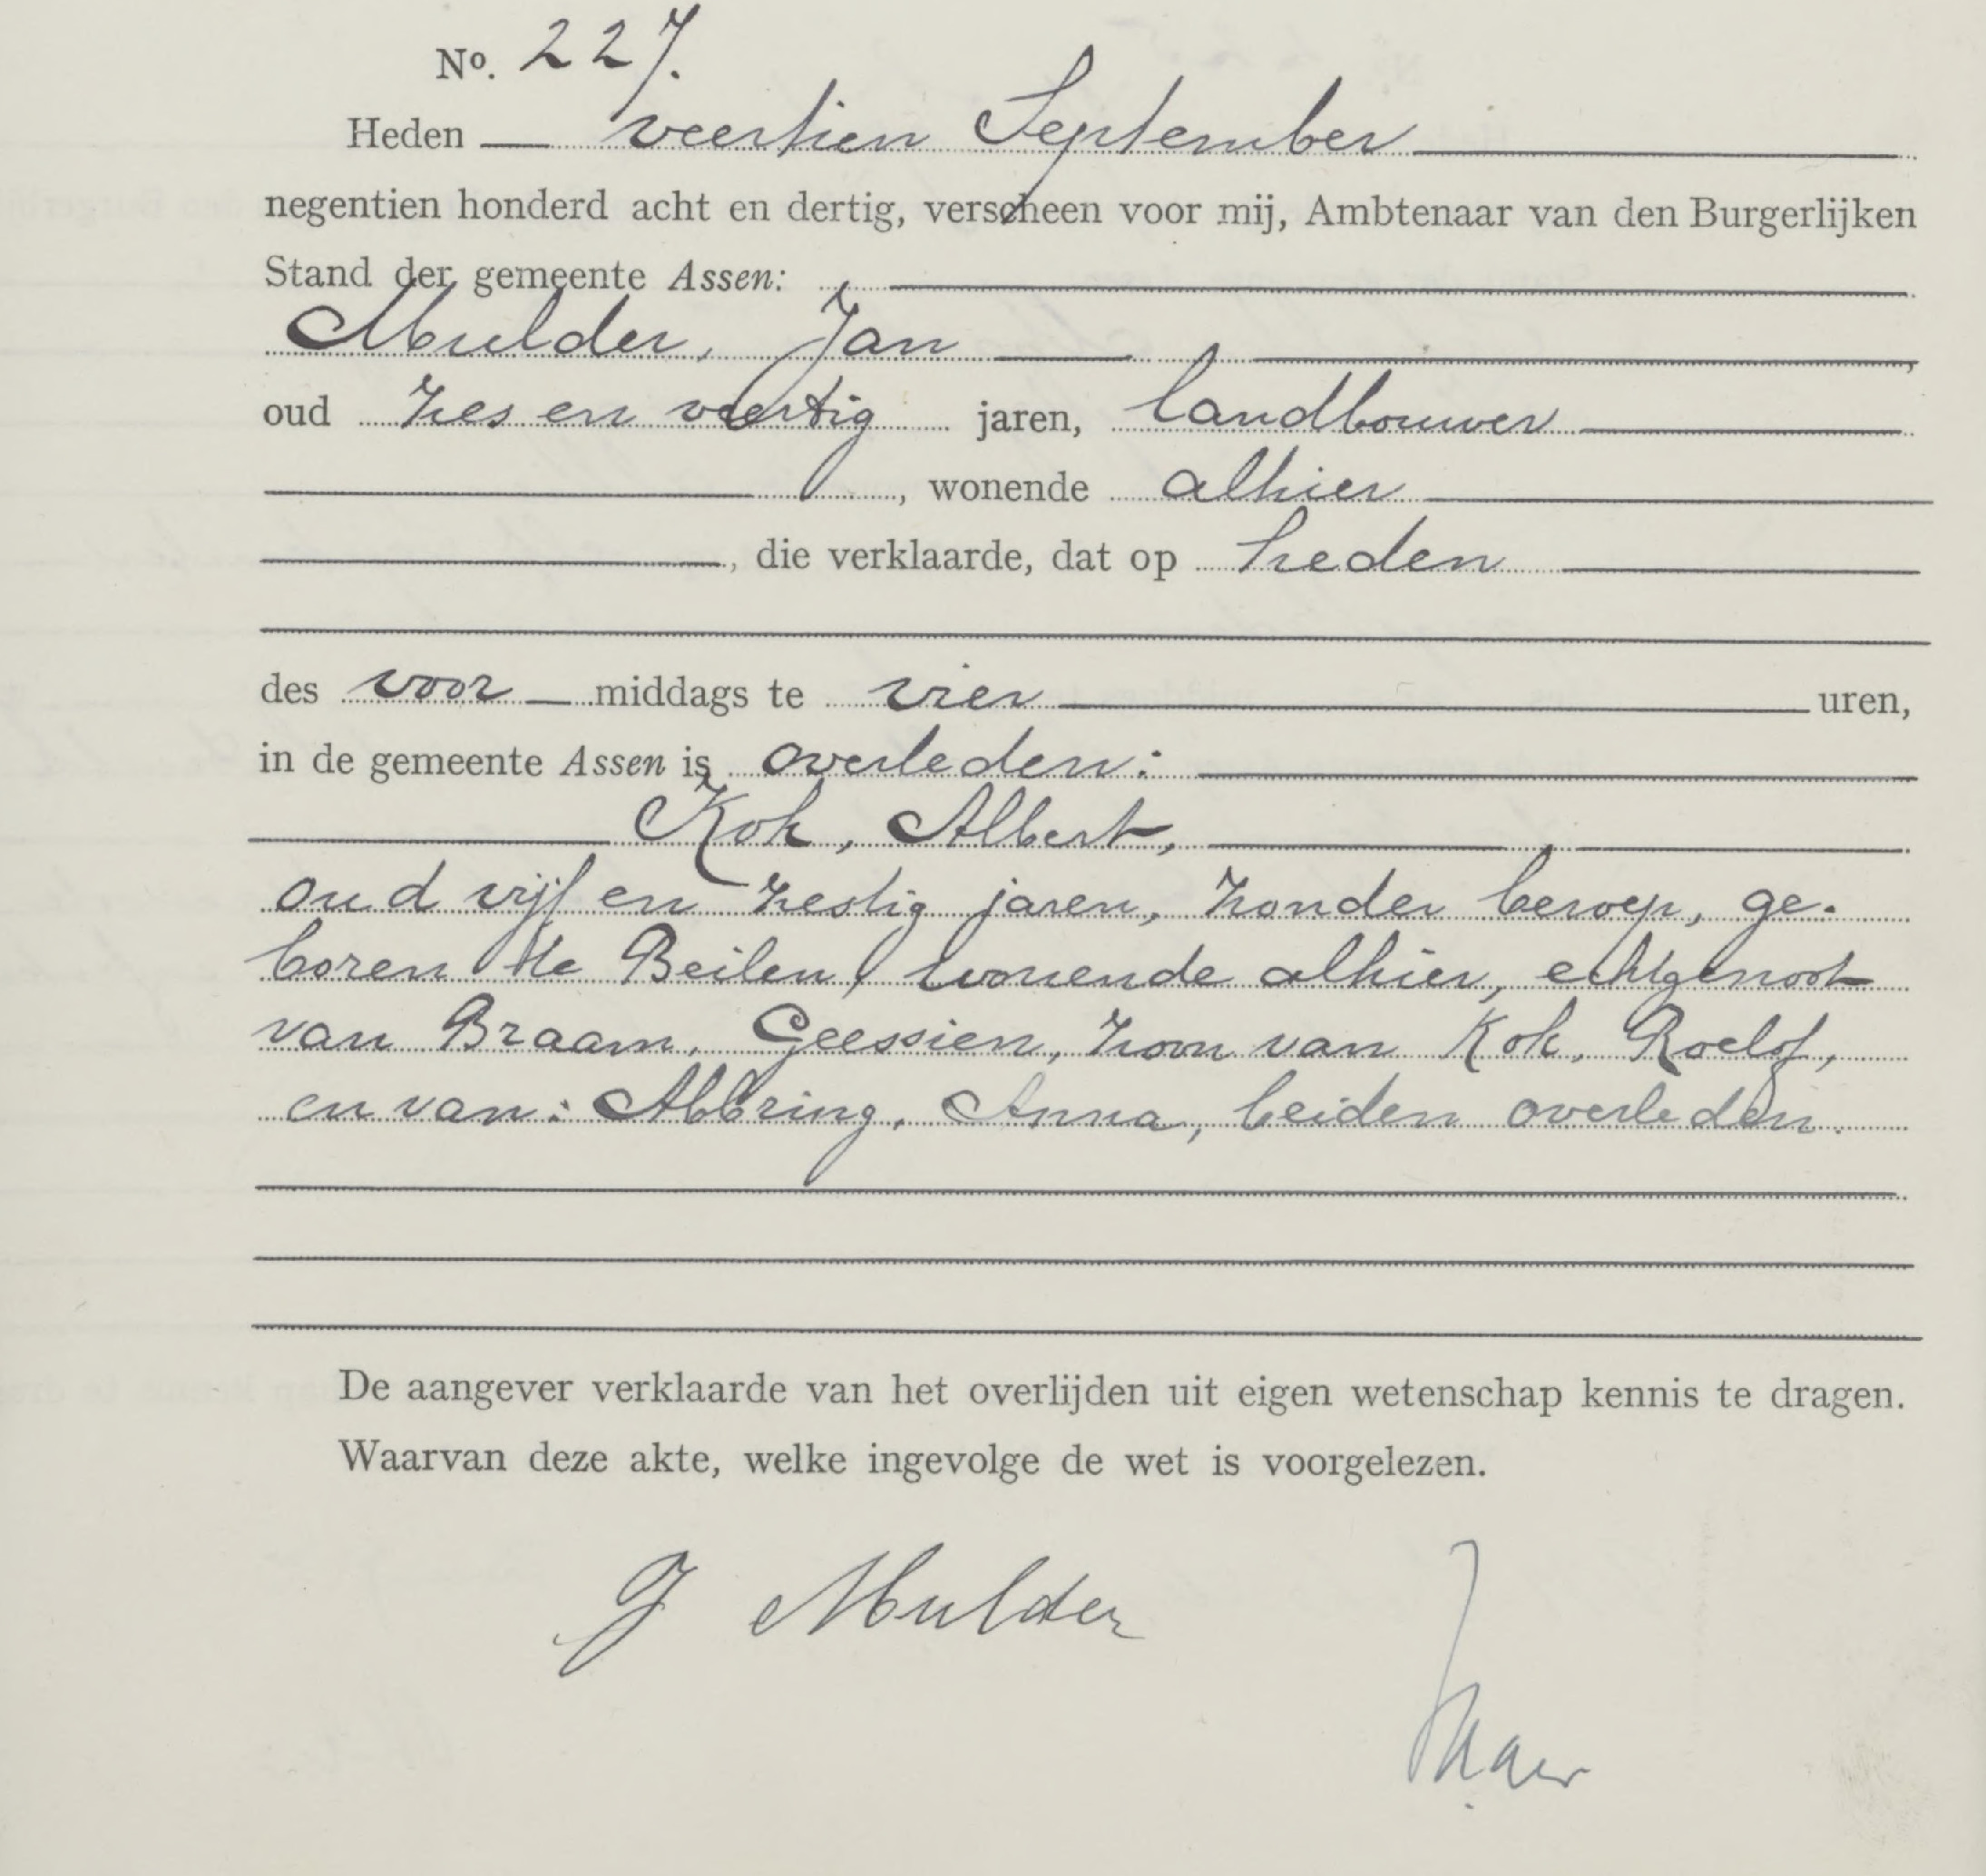 No. 227.
Heden veertien September
negentien honderd acht en dertig, verscheen voor mij, Ambtenaar van den Burgerlijken
Stand der gemeente Assen:
Mulder, Jan ,
oud zes en veertig jaren, landbouwer
, wonende alhier
, die verklaarde, dat op heden
des voor middags te vier uren,
in de gemeente Assen is overleden:
Kok, Albert,
oud vijf en zestig jaren, zonder beroep, ge-
boren te Beilen, wonende alhier, echtgenoot
van Braam, Geessien, zoon van Kok, Roelof,
en van: Abbring, Anna, beiden overleden.
De aangever verklaarde van het overlijden uit eigen wetenschap kennis te dragen.
Waarvan deze akte, welke ingevolge de wet is voorgelezen.
J Mulder